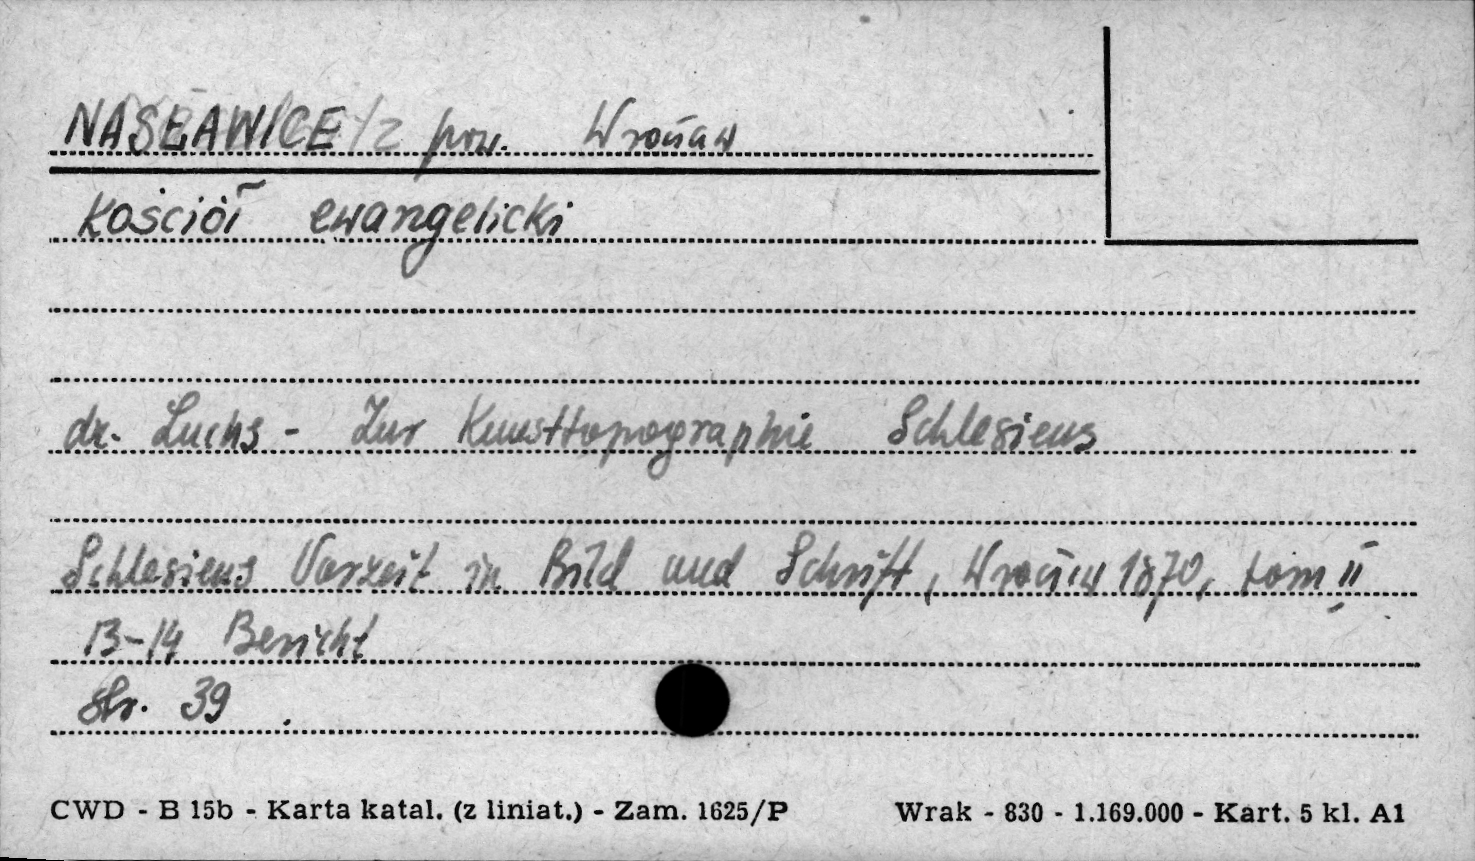 NASŁAWICE /z pow. Wrocław
Kościół ewangelicki
dr. Luchs - Zur Kunsttopographie Schlesiens
Schlesiens Vorzeit in Bild und Schrift, Wrocław 1870, tom II
13-14 Bericht
str. 39
CWD - B 15b - Karta katal. (z liniat.) - Zam. 1625/P Wrak - 830 - 1.169.000 - Kart. 5 kl. A1